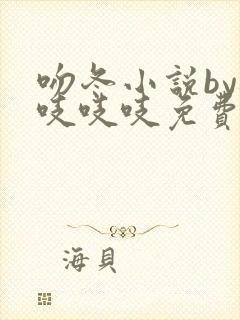 吻冬小說by
吱吱吱免費
海貝